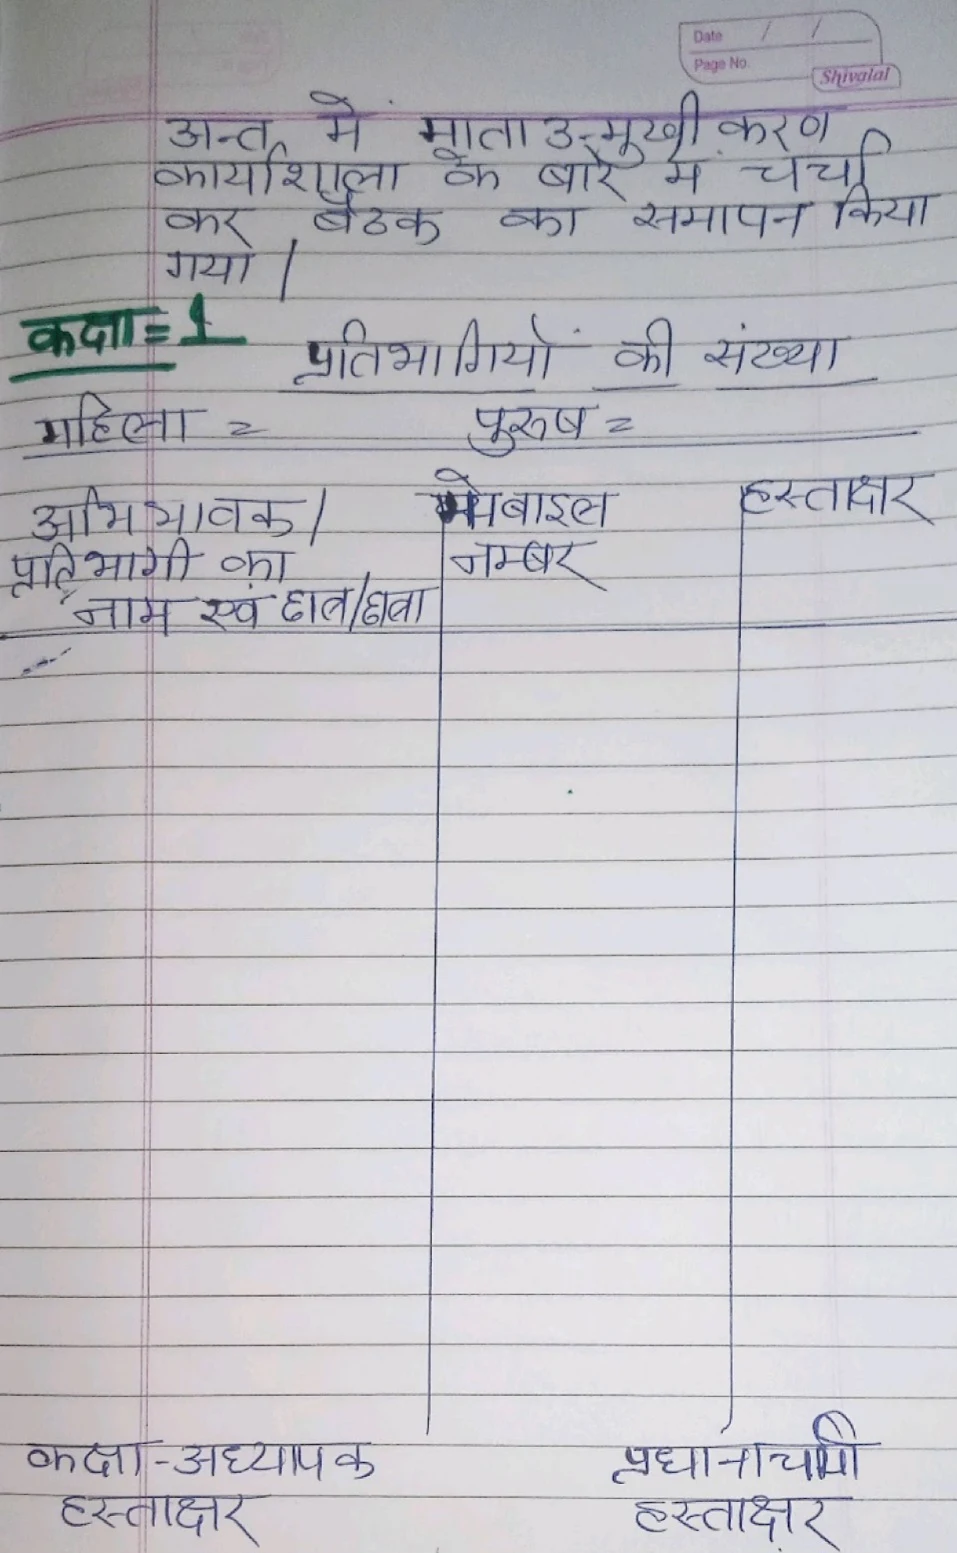 Date / /
Page No.
Shivalal
अन्त में माता उन्मुखीकरण
कार्यशाला के बारे में चर्चा
कर बैठक का समापन किया
गया |
कक्षा = 1
प्रतिभागियों की संख्या
महिला =	पुरुष =
अभिभावक/	मोबाइल	हस्ताक्षर
प्रतिभागी का	नम्बर
नाम एवं छात्र/छात्रा
कक्षा-अध्यापक	प्रधानाचार्य
हस्ताक्षर	हस्ताक्षर